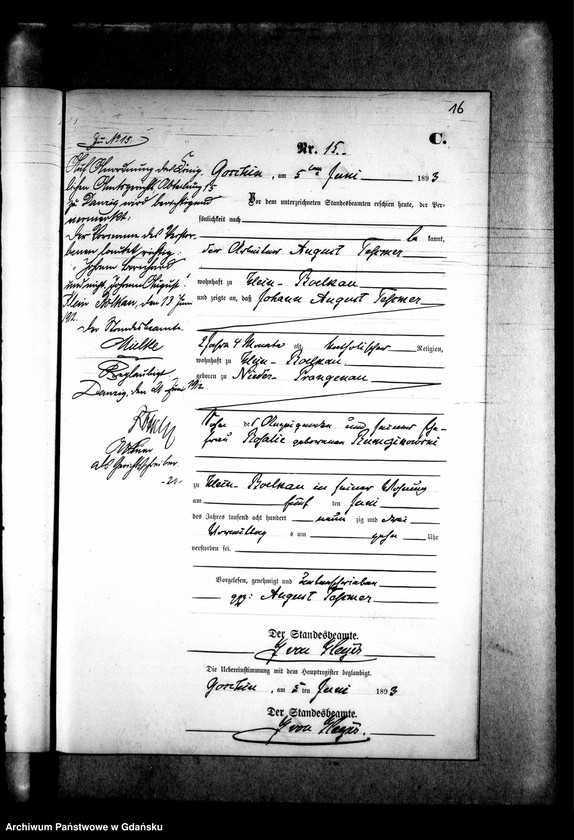 16
C.
Nr. 15.
Goschin, am 5ten Juni 1893
Vor dem unterzeichneten Standesbeamten erschien heute, der Per-
sönlichkeit nach
kannt,
der Arbeiter August Teßmer
wohnhaft zu Klein-Boelkau
und zeigte an, daß Johann August Teßmer
2 Jahre 4 Monate alt, katholischer Religion,
wohnhaft zu Klein-Boelkau
geboren zu Nieder-Prangenau
Sohn des Anzeigenden und seiner Ehe-
frau Rosalie geborenen
zu Klein-Boelkau in seiner Wohnung
am fünf ten Juni
des Jahres tausend acht hundert neun zig und drei
Vormittag s um zehn Uhr
verstorben sei.
Vorgelesen, genehmigt und unterschrieben
gez: August Teßmer
Der Standesbeamte.
von Heyer
Die Uebereinstimmung mit dem Hauptregister beglaubigt.
Goschin, am 5 ten Juni 1893
Der Standesbeamte.
von Heyer.
Zu No 15.
Auf Anordnung des König-
lichen Amtsgerichts Abteilung 15
zu Danzig wird berichtigend
vermerkt:
Der Vorname des Verstor-
benen lautet richtig:
"Johann
und nicht "Johann August".
Klein Bölkau, den 13 Juni
1912.
Der Standesbeamte.
Beglaubigt
Danzig, den Juni 1912
als Gerichtsschreiber.
Archiwum Państwowe w Gdańsku